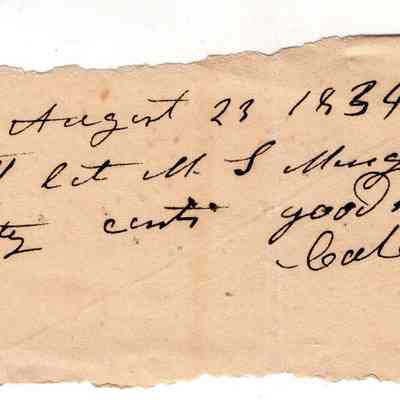 August 23 1834
let M. S Mung
ty cents good
Cal